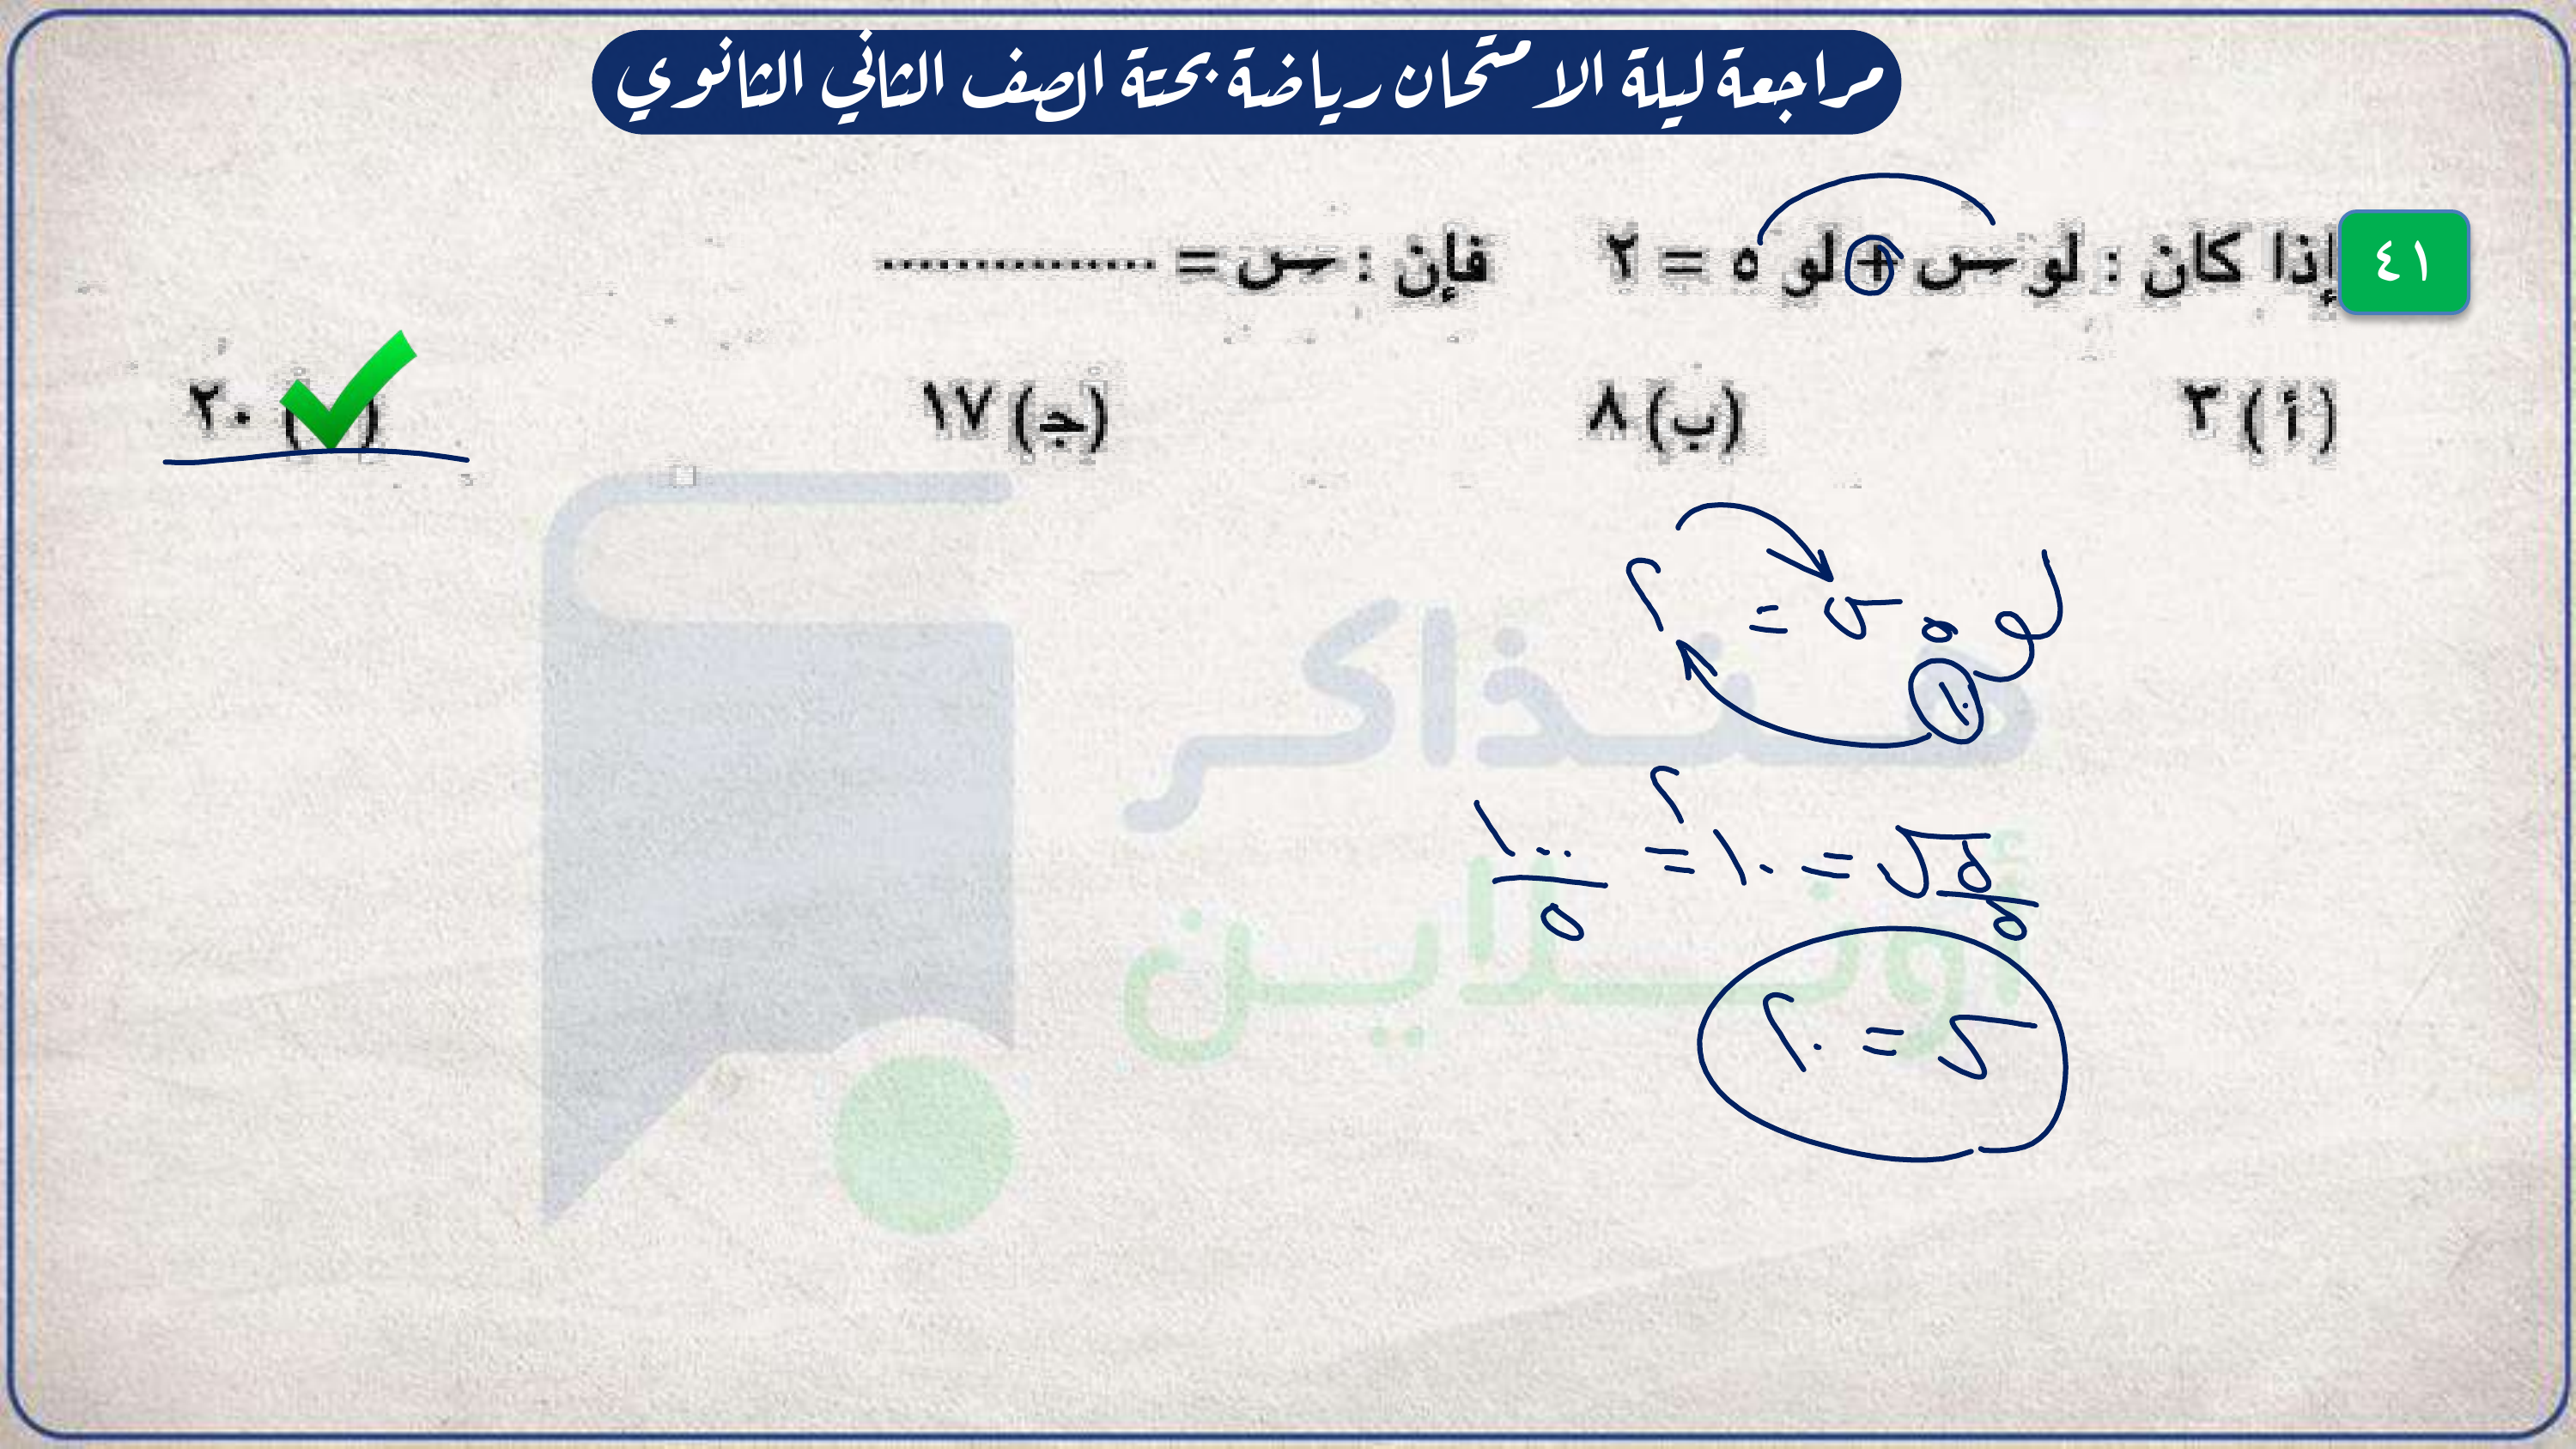 مراجعة ليلة الامتحان رياضة بحتة الصف الثاني الثانوي
٤١ إذا كان : لو س + لو ٥ = ٢ فإن : س = ...............
(أ) ٣ (ب) ٨ (ج) ١٧ ( ) ٢٠
لو ٥ س = ٢
١٠
٥ س / ٥ = ١٠^٢ = ١٠٠ / ٥
س = ٢٠
ذاكر
أونلاين